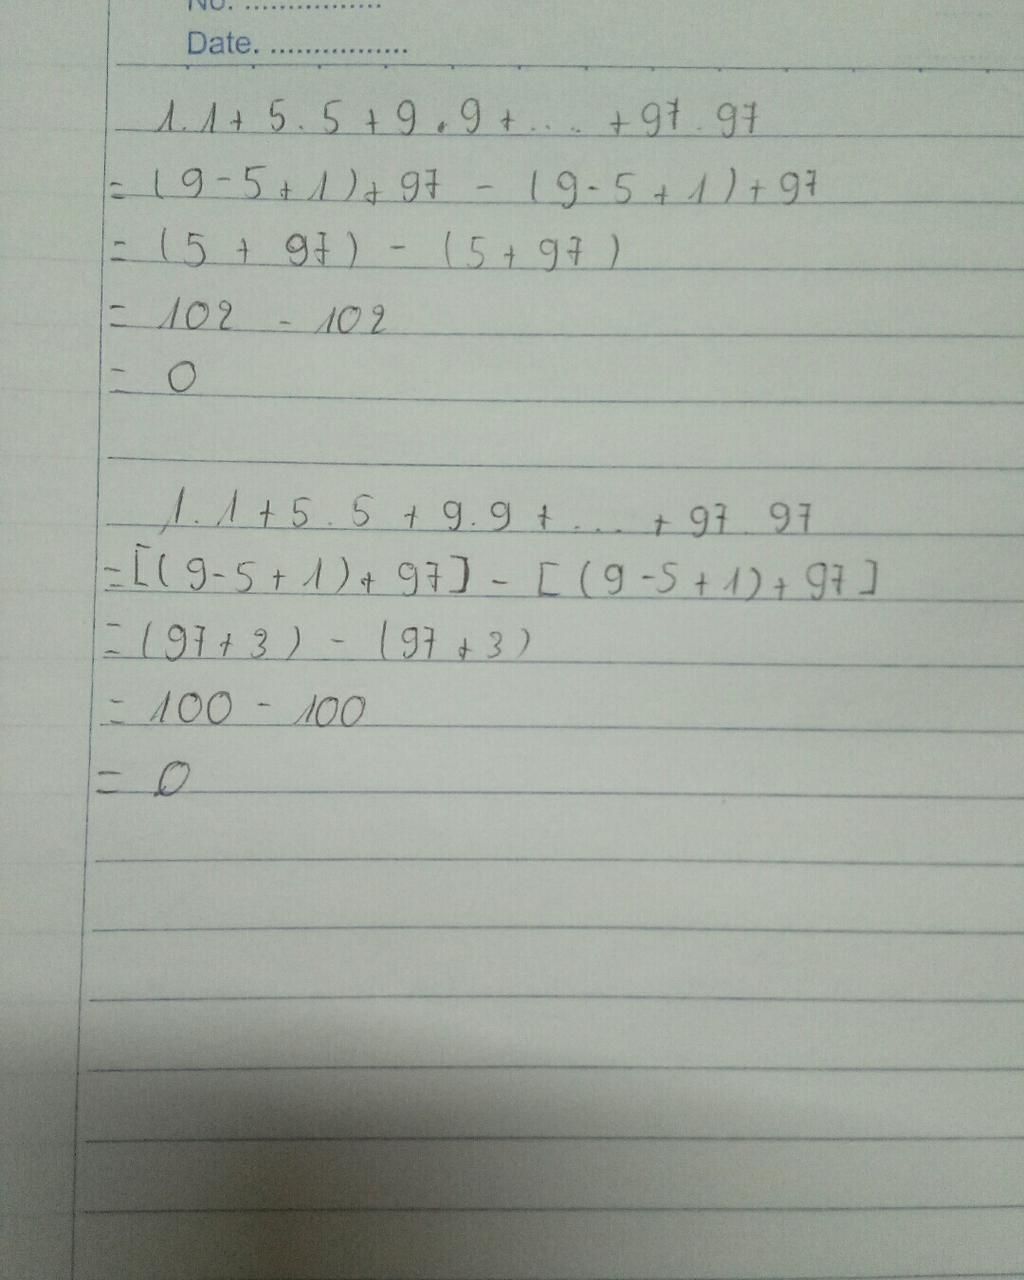 No. ................
Date. ................
1.1 + 5.5 + 9.9 + .... + 97.97
= (9-5+1)+97 - (9-5+1)+97
= (5 + 97) - (5+97)
= 102 - 102
= 0
1.1 + 5.5 + 9.9 + ... + 97 97
=[(9-5+1)+97] - [(9-5+1)+97]
= (97+3) - (97+3)
= 100 - 100
= 0